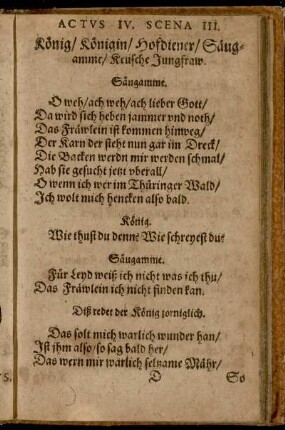 ACTVS IV. SCENA III.
König/ Königin/ Hofdiener/ Säug-
amme/ Keusche Jungfraw.
Säugamme.
O weh/ach weh/ach lieber Gott/
Da wird sich heben jammer vnd noth/
Das Fräwlein ist kommen hinweg/
Der Karn der steht nun gar im Dreck/
Die Backen werdn mir werden schmal/
Hab sie gesucht jetzt vberall/
O wenn ich wer im Thüringer Wald/
Ich wolt mich hencken also bald.
König.
Wie thust du denn? Wie schreyest du?
Säugamme.
Für Leyd weiß ich nicht was ich thu/
Das Fräwlein ich nicht finden kan.
Diß redet der König zorniglich.
Das solt mich warlich wunder han/
Ist jhm also/so sag bald her/
Das wern mir warlich seltzame Mähr/
D
So